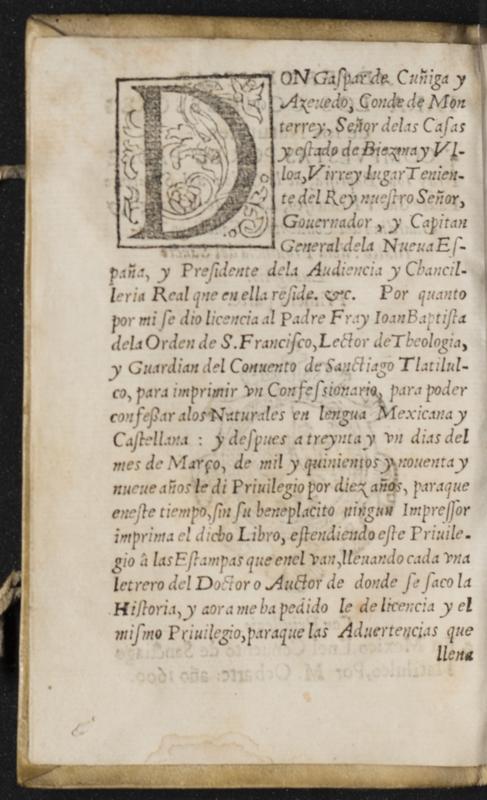 DON Gaſpar de Cuñiga y
Azeuedo, Conde de Mon
terrey, Señor delas Caſas
y eſtado de Biezma y Vl-
loa, Virrey lugar Tenien-
te del Rey nueſtro Señor,
Gouernador, y Capitan
General dela Nueua Eſ-
paña, y Preſidente dela Audiencia y Chancil-
leria Real que en ella reſide. &c. Por quanto
por mi ſe dio licencia al Padre Fray Ioan Baptiſta
dela Orden de S. Franciſco, Lector de Theologia,
y Guardian del Conuento de Sanctiago Tlatilul-
co, para imprimir vn Confeſsionario, para poder
confeßar alos Naturales en lengua Mexicana y
Caſtellana : y deſpues a treynta y vn dias del
mes de Março, de mil y quinientos y nouenta y
nueue años le di Priuilegio por diez años, paraque
eneſte tiempo, ſin ſu beneplacito ningun Impreſſor
imprima el dicho Libro, eſtendiendo eſte Priuile-
gio â las Eſtampas que enel van, lleuando cada vna
letrero del Doctor o Auctor de donde ſe ſaco la
Hiſtoria, y aora me ha pedido le de licencia y el
miſmo Priuilegio, paraque las Aduertencias que
llena